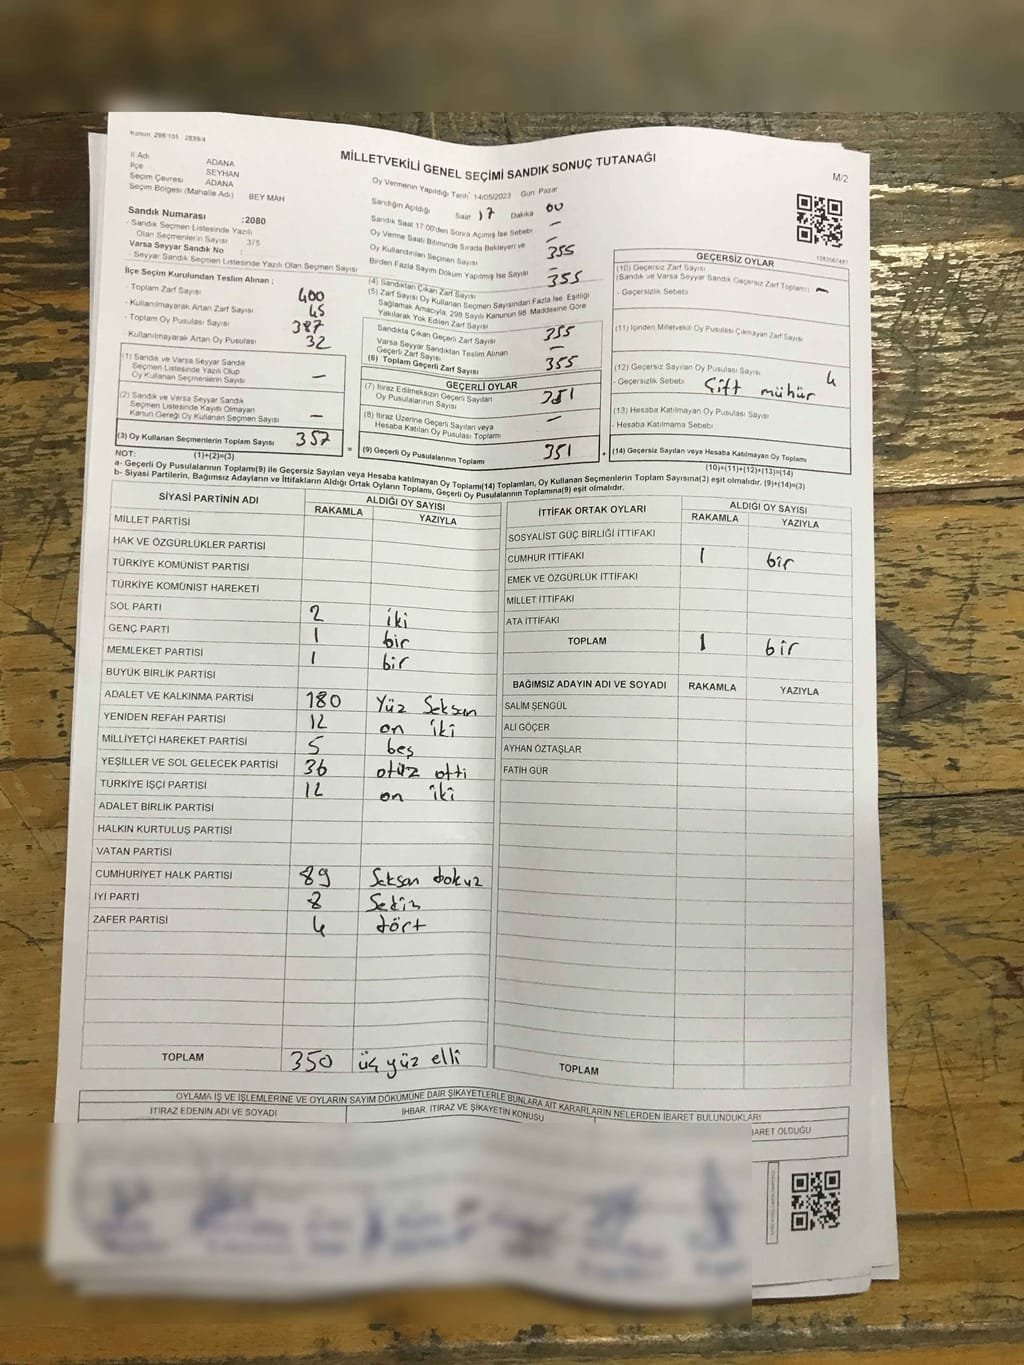 Kanun: 298/105 2839/4
MİLLETVEKİLİ GENEL SEÇİMİ SANDIK SONUÇ TUTANAĞI
M/2
İl Adı ADANA
İlçe SEYHAN
Seçim Çevresi ADANA
Seçim Bölgesi (Mahalle Adı) BEY MAH
Sandık Numarası :2080
- Sandık Seçmen Listesinde Yazılı
Olan Seçmenlerin Sayısı 375
Varsa Seyyar Sandık No :
- Seyyar Sandık Seçmen Listesinde Yazılı Olan Seçmen Sayısı
Oy Vermenin Yapıldığı Tarih 14/05/2023 Gün Pazar
Sandığın Açıldığı Saat 17 Dakika 00
Sandık Saat 17.00'den Sonra Açılmış İse Sebebi —
Oy Verme Saati Bitiminde Sırada Bekleyen ve —
Oy Kullandırılan Seçmen Sayısı 355
Birden Fazla Sayım Döküm Yapılmış İse Sayısı —
İlçe Seçim Kurulundan Teslim Alınan ;
- Toplam Zarf Sayısı 400
- Kullanılmayarak Artan Zarf Sayısı 45
- Toplam Oy Pusulası Sayısı 387
- Kullanılmayarak Artan Oy Pusulası 32
(1) Sandık ve Varsa Seyyar Sandık
Seçmen Listesinde Yazılı Olup
Oy Kullanan Seçmenlerin Sayısı —
(2) Sandık ve Varsa Seyyar Sandık
Seçmen Listesinde Kayıtlı Olmayan
Kanun Gereği Oy Kullanan Seçmen Sayısı —
(3) Oy Kullanan Seçmenlerin Toplam Sayısı 357
(4) Sandıktan Çıkan Zarf Sayısı 355
(5) Zarf Sayısı Oy Kullanan Seçmen Sayısından Fazla İse, Eşitliği
Sağlamak Amacıyla, 298 Sayılı Kanunun 98. Maddesine Göre
Yakılarak Yok Edilen Zarf Sayısı
Sandıkta Çıkan Geçerli Zarf Sayısı 355
Varsa Seyyar Sandıktan Teslim Alınan
Geçerli Zarf Sayısı —
(6) Toplam Geçerli Zarf Sayısı 355
GEÇERLİ OYLAR
(7) İtiraz Edilmeksizin Geçerli Sayılan
Oy Pusulalarının Sayısı 351
(8) İtiraz Üzerine Geçerli Sayılan veya
Hesaba Katılan Oy Pusulası Toplamı —
(9) Geçerli Oy Pusulalarının Toplamı 351
GEÇERSİZ OYLAR
(10) Geçersiz Zarf Sayısı
(Sandık ve Varsa Seyyar Sandık Geçersiz Zarf Toplamı) —
- Geçersizlik Sebebi
(11) İçinden Milletvekili Oy Pusulası Çıkmayan Zarf Sayısı
(12) Geçersiz Sayılan Oy Pusulası Sayısı 4
- Geçersizlik Sebebi Çift mühür
(13) Hesaba Katılmayan Oy Pusulası Sayısı
- Hesaba Katılmama Sebebi
(14) Geçersiz Sayılan veya Hesaba Katılmayan Oy Toplamı
NOT: (1)+(2)=(3) (10)+(11)+(12)+(13)=(14)
a- Geçerli Oy Pusulalarının Toplamı(9) ile Geçersiz Sayılan veya Hesaba katılmayan Oy Toplamı(14) Toplamları, Oy Kullanan Seçmenlerin Toplam Sayısına(3) eşit olmalıdır. (9)+(14)=(3)
b- Siyasi Partilerin, Bağımsız Adayların ve İttifakların Aldığı Ortak Oyların Toplamı, Geçerli Oy Pusulalarının Toplamına(9) eşit olmalıdır.
SİYASİ PARTİNİN ADI ALDIĞI OY SAYISI
RAKAMLA YAZIYLA
MİLLET PARTİSİ
HAK VE ÖZGÜRLÜKLER PARTİSİ
TÜRKİYE KOMÜNİST PARTİSİ
TÜRKİYE KOMÜNİST HAREKETİ
SOL PARTİ 2 iki
GENÇ PARTİ 1 bir
MEMLEKET PARTİSİ 1 bir
BÜYÜK BİRLİK PARTİSİ
ADALET VE KALKINMA PARTİSİ 180 Yüz Seksen
YENİDEN REFAH PARTİSİ 12 on iki
MİLLİYETÇİ HAREKET PARTİSİ 5 beş
YEŞİLLER VE SOL GELECEK PARTİSİ 36 otuz altı
TÜRKİYE İŞÇİ PARTİSİ 12 on iki
ADALET BİRLİK PARTİSİ
HALKIN KURTULUŞ PARTİSİ
VATAN PARTİSİ
CUMHURİYET HALK PARTİSİ 89 Seksen dokuz
İYİ PARTİ 8 Sekiz
ZAFER PARTİSİ 4 dört
TOPLAM 350 üç yüz elli
İTTİFAK ORTAK OYLARI ALDIĞI OY SAYISI
RAKAMLA YAZIYLA
SOSYALİST GÜÇ BİRLİĞİ İTTİFAKI
CUMHUR İTTİFAKI 1 bir
EMEK VE ÖZGÜRLÜK İTTİFAKI
MİLLET İTTİFAKI
ATA İTTİFAKI
TOPLAM 1 bir
BAĞIMSIZ ADAYIN ADI VE SOYADI RAKAMLA YAZIYLA
SALİM ŞENGÜL
ALİ GÖÇER
AYHAN ÖZTAŞLAR
FATİH GÜR
TOPLAM
OYLAMA İŞ VE İŞLEMLERİNE VE OYLARIN SAYIM DÖKÜMÜNE DAİR ŞİKAYETLERLE BUNLARA AİT KARARLARIN NELERDEN İBARET BULUNDUKLARI
İTİRAZ EDENİN ADI VE SOYADI İHBAR, İTİRAZ VE ŞİKAYETİN KONUSU BARET OLDUĞU